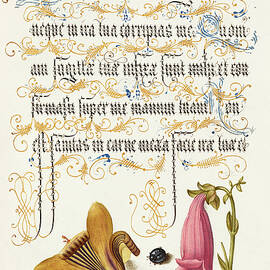 neque in ira tua corripias me. Quoni
am sagittæ tuæ infixæ sunt mihi et con
firmasti super me manum tuam Non
est sanitas in carne mea a facie iræ tuæ et